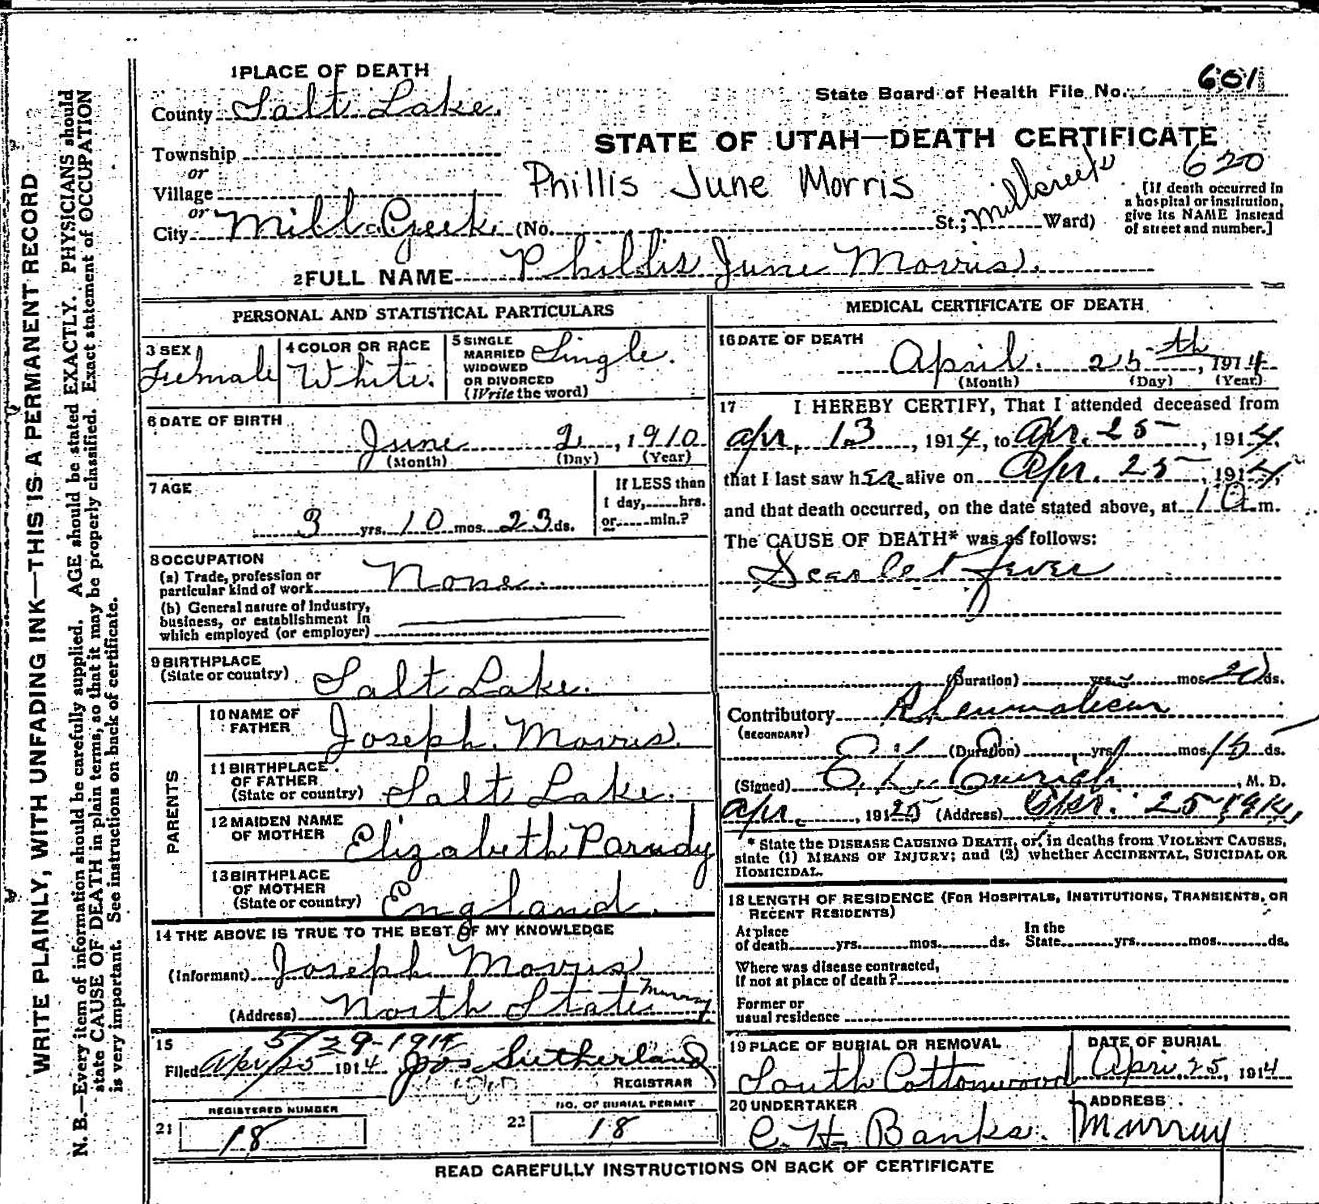 WRITE PLAINLY, WITH UNFADING INK—THIS IS A PERMANENT RECORD
N. B.—Every item of information should be carefully supplied. AGE should be stated EXACTLY. PHYSICIANS should
state CAUSE OF DEATH in plain terms, so that it may be properly classified. Exact statement of OCCUPATION
is very important. See instructions on back of certificate.
1 PLACE OF DEATH
County Salt Lake.
State Board of Health File No. 601
STATE OF UTAH—DEATH CERTIFICATE
620
Township
or
Village
or
Phillis June Morris
City Mill Creek. (No. St.; Millcreek Ward)
[If death occurred in
a hospital or institution,
give its NAME instead
of street and number.]
2 FULL NAME Phillis June Morris.
PERSONAL AND STATISTICAL PARTICULARS
3 SEX
Female
4 COLOR OR RACE
White.
5 SINGLE
MARRIED
WIDOWED
OR DIVORCED
(Write the word)
Single.
6 DATE OF BIRTH
June 2, 1910
(Month) (Day) (Year)
7 AGE
3 yrs. 10 mos. 23 ds.
If LESS than
1 day, hrs.
or min.?
8 OCCUPATION
(a) Trade, profession or
particular kind of work None.
(b) General nature of industry,
business, or establishment in
which employed (or employer)
9 BIRTHPLACE
(State or country) Salt Lake.
PARENTS
10 NAME OF
FATHER Joseph Morris.
11 BIRTHPLACE
OF FATHER
(State or country) Salt Lake.
12 MAIDEN NAME
OF MOTHER Elizabeth Parudy
13 BIRTHPLACE
OF MOTHER
(State or country) England.
14 THE ABOVE IS TRUE TO THE BEST OF MY KNOWLEDGE
(Informant) Joseph Morris
(Address) North State Murray
15
5/29-1914
Filed Apr/25 1914 Jos Sutherland
REGISTRAR
REGISTERED NUMBER
21 18
NO. OF BURIAL PERMIT
22 18
MEDICAL CERTIFICATE OF DEATH
16 DATE OF DEATH
April. 25th, 1914
(Month) (Day) (Year)
17 I HEREBY CERTIFY, That I attended deceased from
apr. 13, 1914, to apr. 25, 1914,
that I last saw her alive on apr. 25, 1914,
and that death occurred, on the date stated above, at 1 a m.
The CAUSE OF DEATH* was as follows:
Scarlet fever
(Duration) yrs. mos. ds.
Contributory Rheumatism
(SECONDARY)
(Duration) yrs. mos. 15 ds.
(Signed) E. L. M. D.
apr. 1925 (Address) 25-1914,
* State the DISEASE CAUSING DEATH, or, in deaths from VIOLENT CAUSES,
state (1) MEANS OF INJURY; and (2) whether ACCIDENTAL, SUICIDAL OR
HOMICIDAL.
18 LENGTH OF RESIDENCE (FOR HOSPITALS, INSTITUTIONS, TRANSIENTS, OR
RECENT RESIDENTS)
At place
of death yrs. mos. ds.
In the
State yrs. mos. ds.
Where was disease contracted,
If not at place of death?
Former or
usual residence
19 PLACE OF BURIAL OR REMOVAL
South Cottonwood
DATE OF BURIAL
Apri. 25, 1914
20 UNDERTAKER
C. H. Banks.
ADDRESS
Murray
READ CAREFULLY INSTRUCTIONS ON BACK OF CERTIFICATE